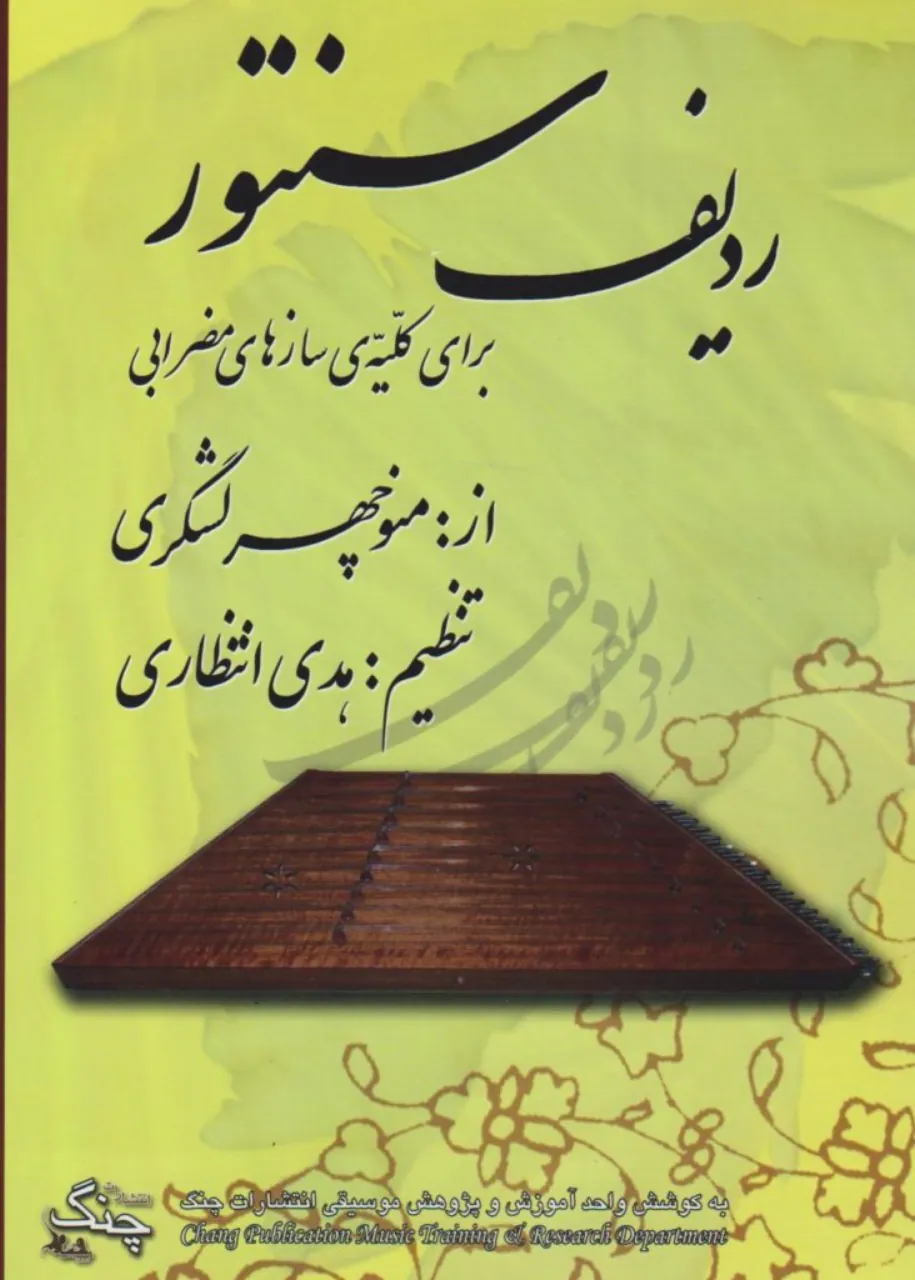 ردیف سنتور
برای کلیّه‌ی سازهای مضرابی
از: منوچهر لشگری
تنظیم: هدی انتظاری
ردیف
ردیف
به کوشش واحد آموزش و پژوهش موسیقی انتشارات چنگ
Chang Publication Music Training & Research Department
انتشارات
چنگ